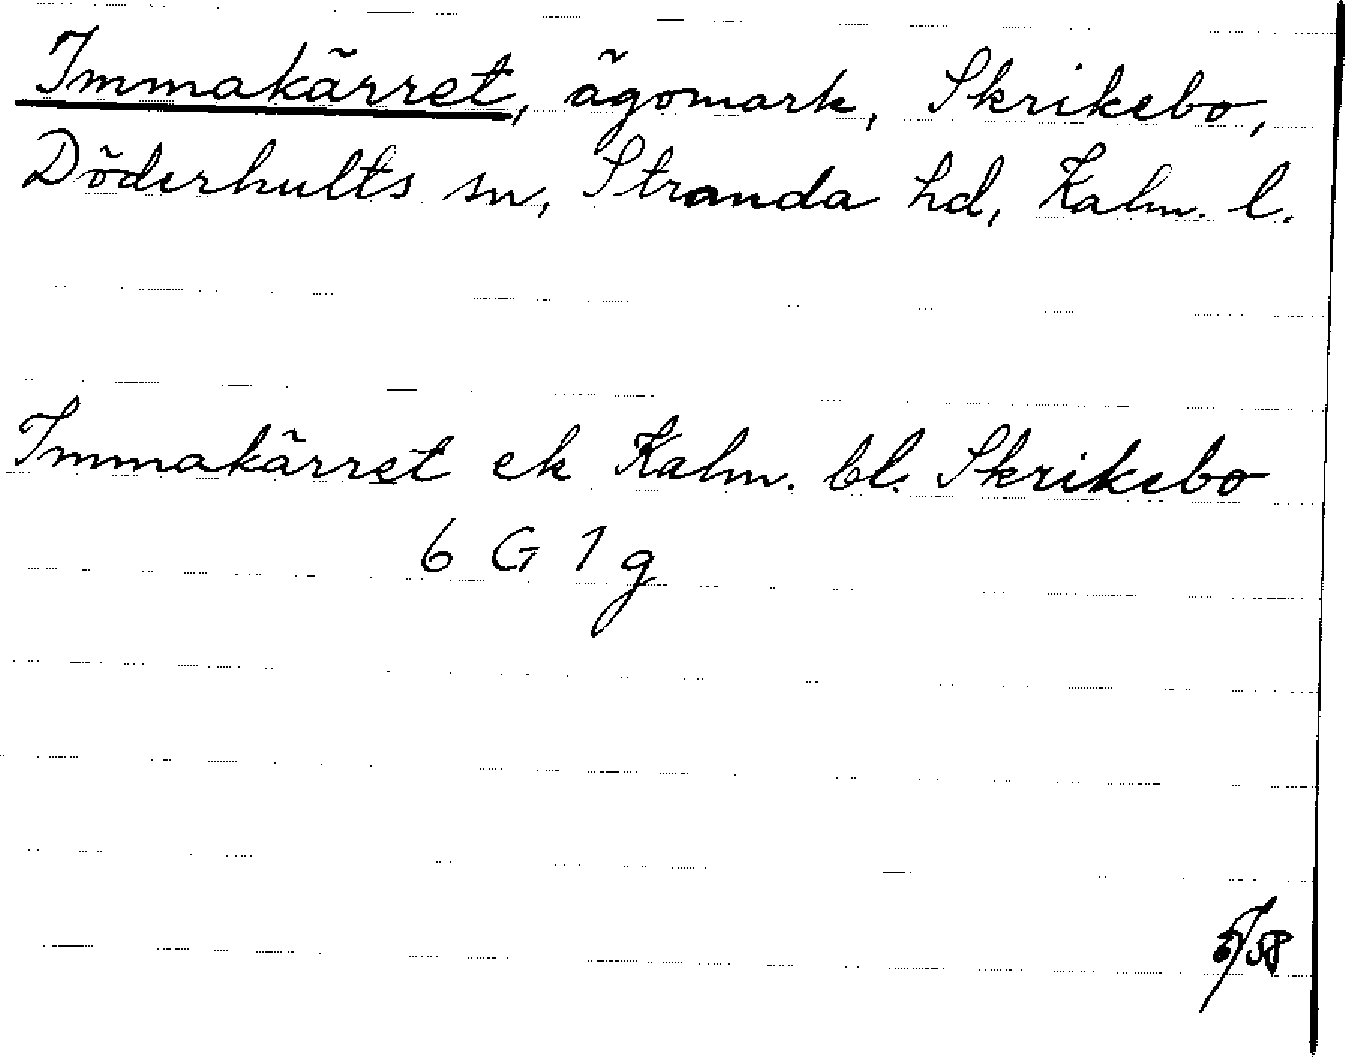 Immakärret, ägomark, Skrikebo,
Döderhults sn, Stranda hd, Kalm. l.
Immakärret ek Kalm. bl. Skrikebo
6 G 1 g